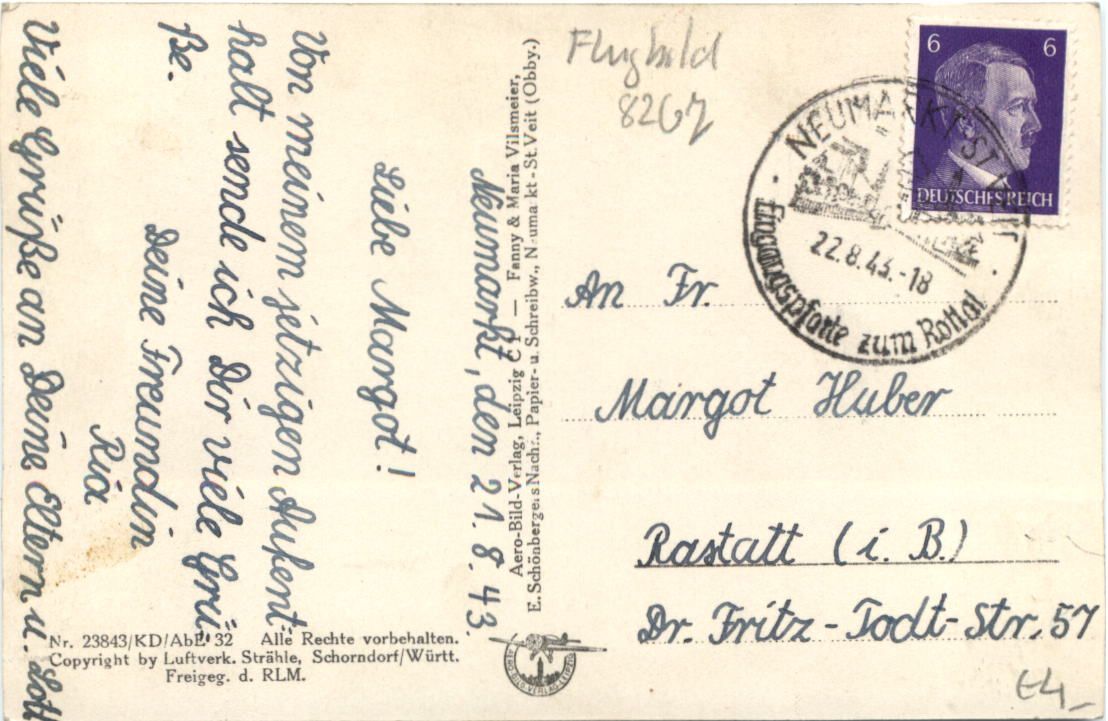 Neumarkt, den 21. 8. 43.
Liebe Margot!
Von meinem jetzigen Aufent-
halt sende ich Dir viele Grü-
ße.
Deine Freundin
Ria
Viele Grüße an Deine Eltern u.
Nr. 23843/KD/AbE 32 Alle Rechte vorbehalten.
Copyright by Luftverk. Strähle, Schorndorf/Württ.
Freigeg. d. RLM.
Aero-Bild-Verlag, Leipzig C 1 — Fanny & Maria Vilsmeier,
E. Schönbergers Nachf., Papier- u. Schreibw., Neumarkt-St. Veit (Obby.)
AERO-BILD-VERLAG LEIPZIG
Flugbild
8267
6 6
DEUTSCHES REICH
NEUMARKT ST. VEIT
22.8.43.-18
Eingangspforte zum Rottal
An Fr.
Margot Huber
Rastatt (i. B.)
Dr. Fritz-Todt-Str. 57